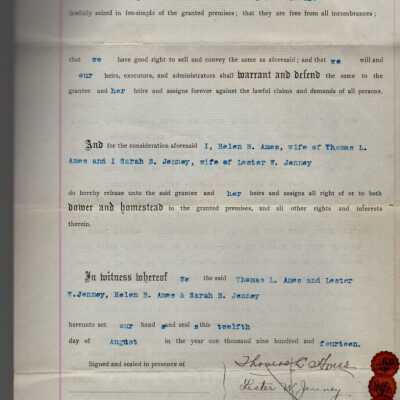 lawfully seized in fee-simple of the granted premises; that they are free from all incumbrances;
that we have good right to sell and convey the same as aforesaid; and that we will and
our heirs, executors, and administrators shall warrant and defend the same to the
grantee and her heirs and assigns forever against the lawful claims and demands of all persons.
And for the consideration aforesaid I, Helen B. Ames, wife of Thomas L.
Ames and I Sarah B. Jenney, wife of Lester W. Jenney
do hereby release unto the said grantee and her heirs and assigns all right of or to both
dower and homestead in the granted premises, and all other rights and interests
therein.
In witness whereof We the said Thomas L. Ames and Lester
W.Jenney, Helen B. Ames & Sarah B. Jenney
hereunto set our hand s and seal s this twelfth
day of August in the year one thousand nine hundred and fourteen.
Signed and sealed in presence of
Thomas L Ames
Lester W. Jenney